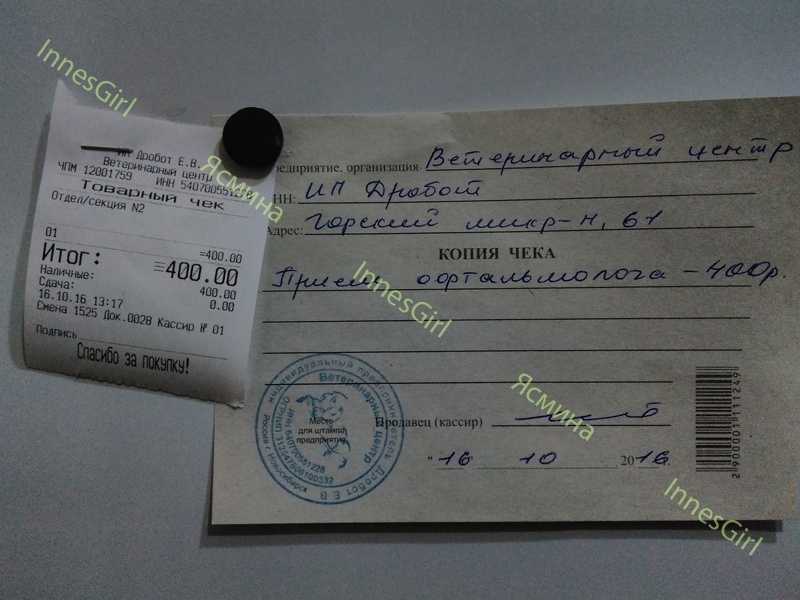 InnesGirl
ИП Дробот Е.В.
Ветеринарный центр
ЧПМ 12001759 ИНН 540700551228
Товарный чек
Отдел/секция N2
01 =400.00
Итог: =400.00
Наличные: 400.00
Сдача: 0.00
16.10.16 13:17
Смена 1525 Док.0028 Кассир № 01
Подпись
Спасибо за покупку!
Ясмина
редприятие, организация Ветеринарный центр
НН: ИП Дробот
Адрес: Горский микр-н, 61
КОПИЯ ЧЕКА
Прием офтальмолога - 400р.
InnesGirl
Ясмина
Продавец (кассир)
"16 10 2016г.
Индивидуальный предприниматель Дробот Е В
Ветеринарный центр
ИНН 540700551228
Россия г Новосибирск
Место
для штампа
предприятия
2900001111249
InnesGirl